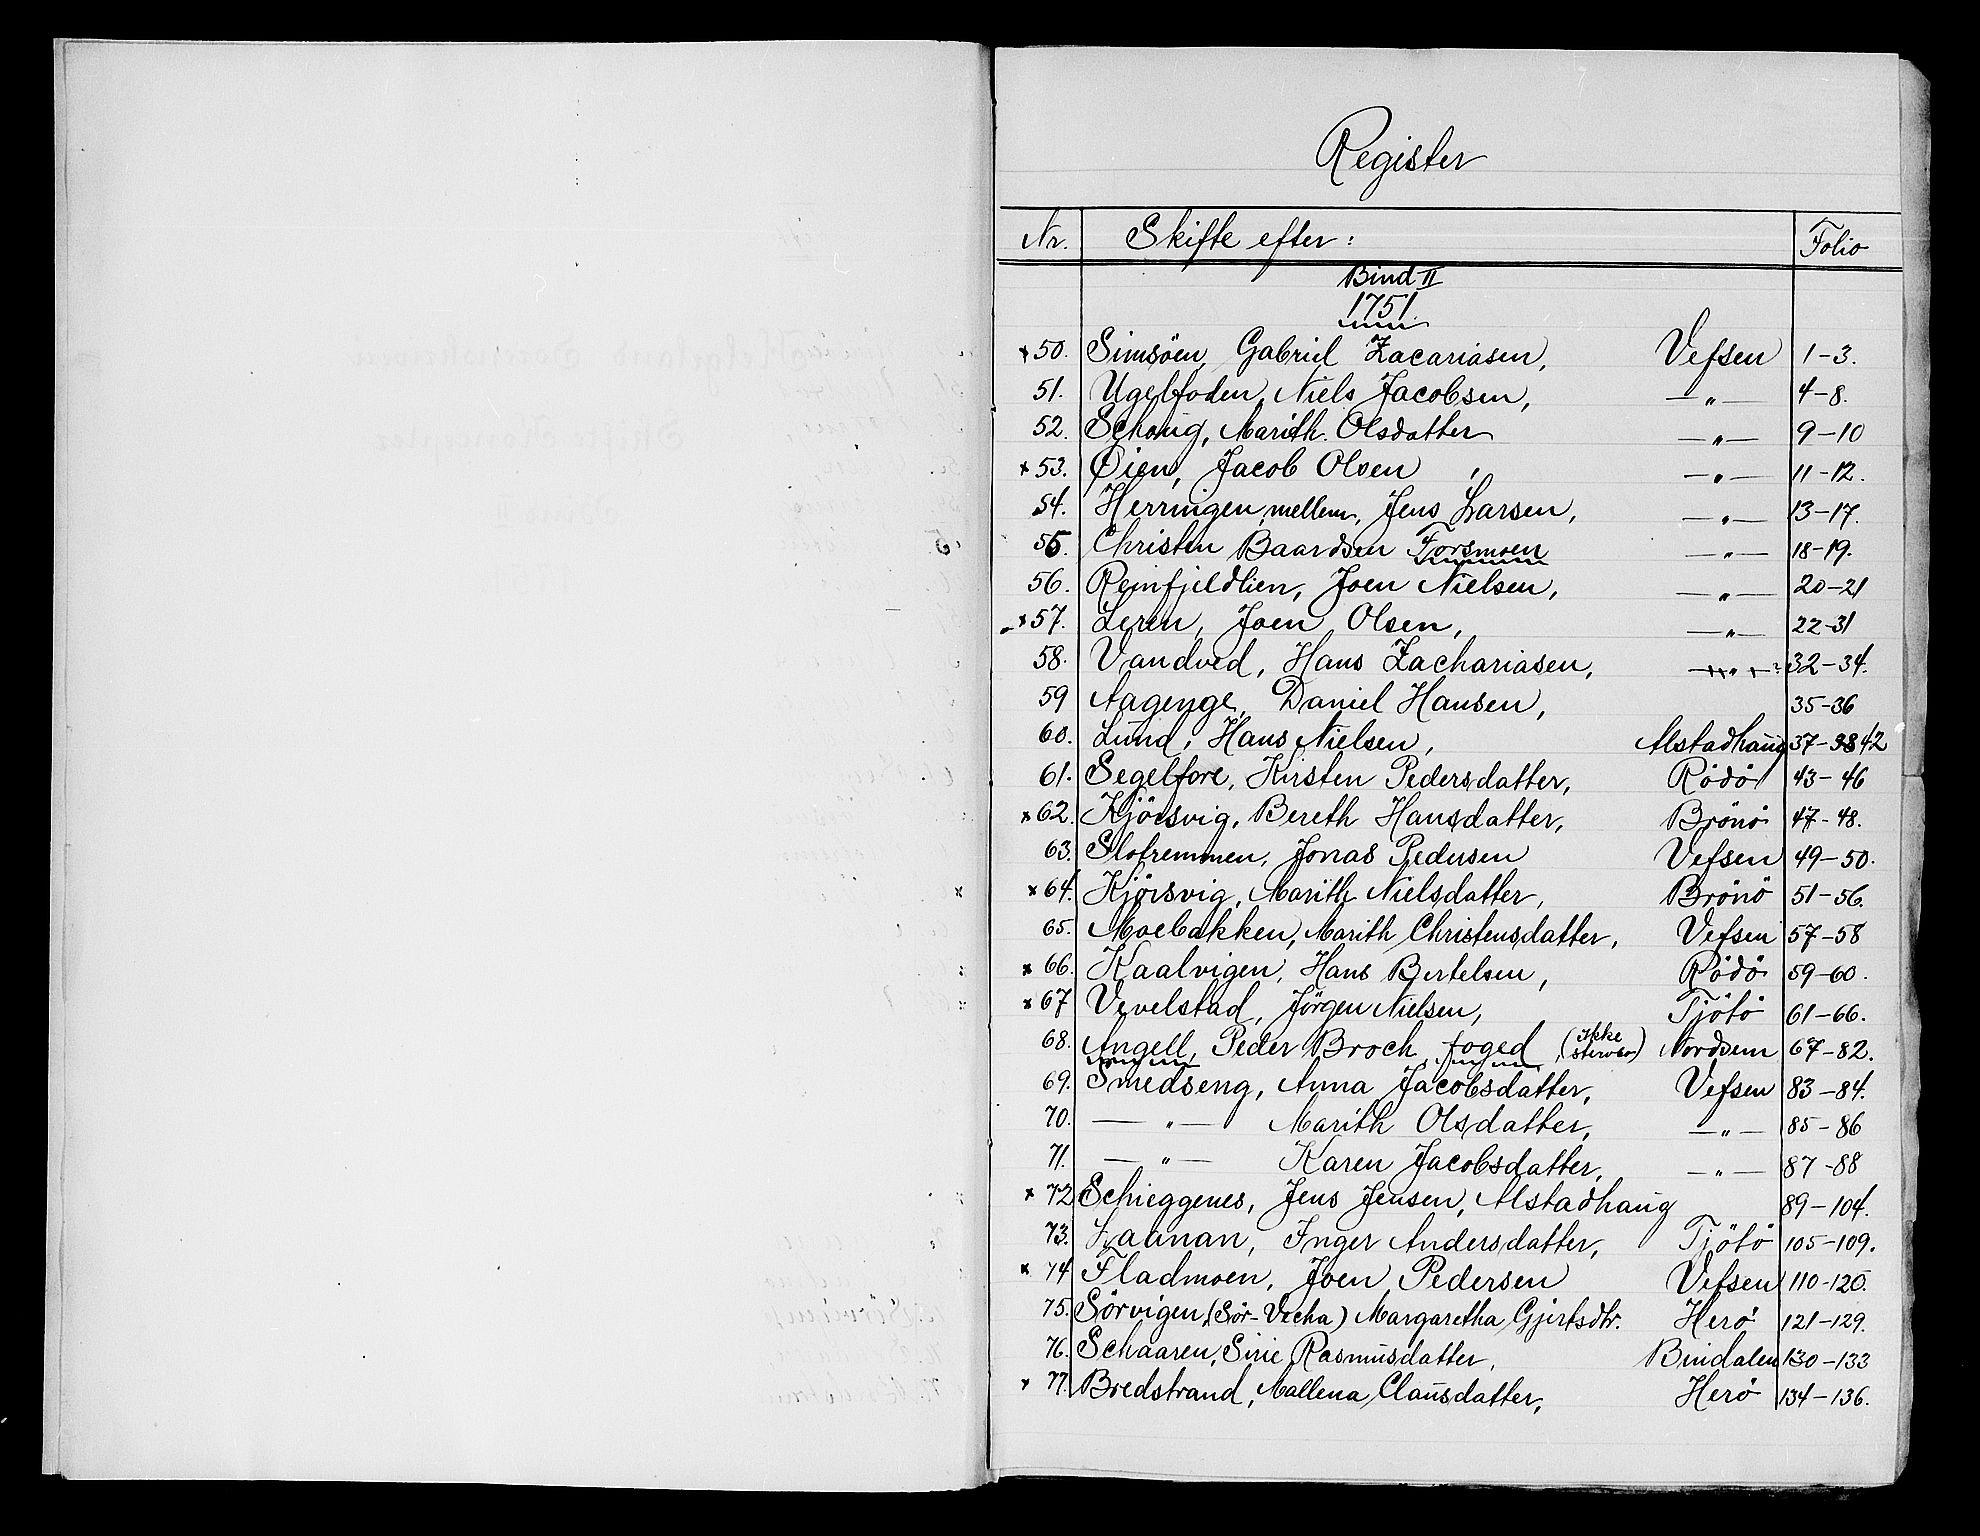 Register
Nr. Skifte efter: Folio
Bind II
1751.
x 50. Simsöen, Gabriel Zacariasen, Vefsen 1-3.
51. Ugelfoden, Niels Jacobsen, —„— 4-8.
52. Schoug, Marith Olsdatter —„— 9-10
x 53. Öien, Jacob Olsen, —„— 11-12.
54. Herringen, mellem, Jens Larsen, —„— 13-17.
55. Christen Baardsen Forsmoen —„— 18-19.
56. Reinfjeldlien, Joen Nielsen, —„— 20-21
x 57. Leren, Joen Olsen, —„— 22-31
58. Vandved, Hans Zachariasen, 32-34.
59 Aagenge, Daniel Hansen, 35-36
60. Lund, Hans Nielsen, Alstadhaug 37-38 42
61. Segelfore, Kirsten Pedersdatter, Rödö 43-46
x 62. Kjörsvig, Bereth Hansdatter, Brönö 47-48.
63. Slotremmen, Jonas Pedersen Vefsen 49-50.
x 64. Kjörsvig, Marith Nielsdatter, Brönö 51-56.
65. Moebakken, Marith Christensdatter, Vefsen 57-58
x 66. Kaalvigen, Hans Bertelsen, Rödö 59-60.
x 67 Vevelstad, Jörgen Nielsen, Tjötö 61-66.
68. Angell, Peder Broch, foged, (ikke stervbo) 67-82.
69. Smedseng, Anna Jacobsdatter, Vefsen 83-84.
70. —„— Marith Olsdatter, —„— 85-86
71. —„— Karen Jacobsdatter, —„— 87-88
x 72 Schieggenes, Jens Jensen, Alstadhaug 89-104.
73. Laanan, Inger Andersdatter, Tjötö 105-109.
x 74 Fladmoen, Joen Pedersen Vefsen 110-120.
75. Sörvigen, (Sör-Vecha) Margaretha Gjertsdtr. Herö 121-129.
76. Schaaren, Sirie Rasmusdatter, Bindalen 130-133
x 77. Bredstrand, Mallena Clausdatter, Herö 134-136.